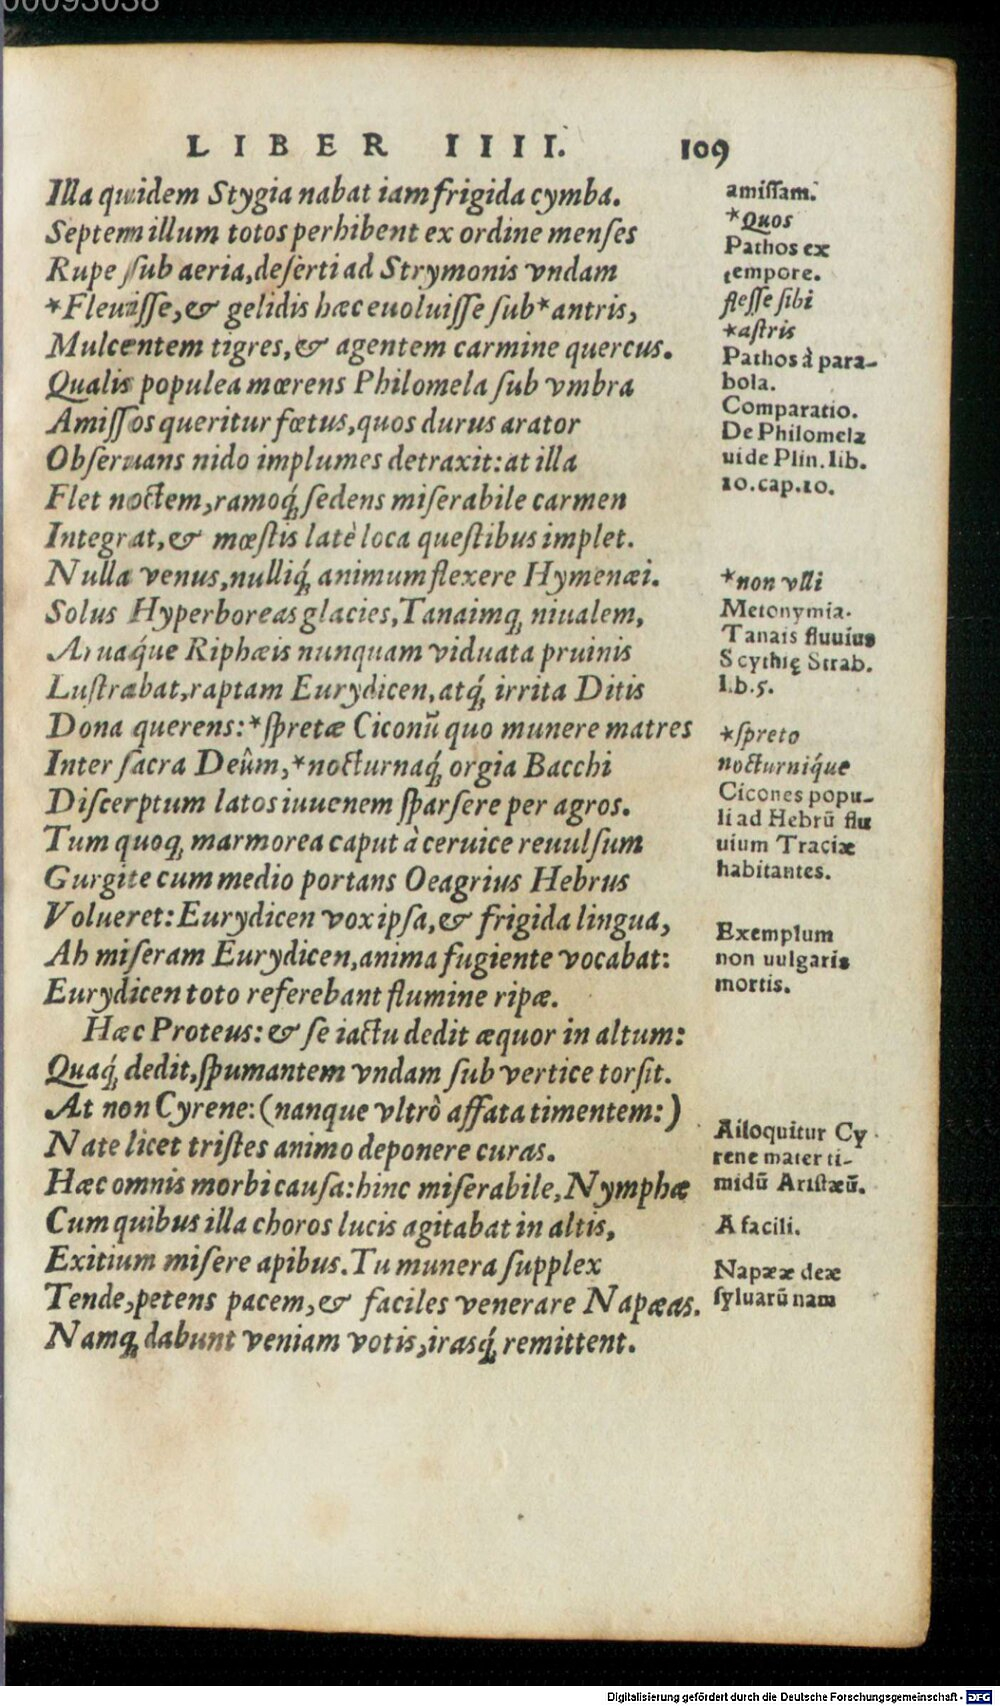 00093038
LIBER IIII. 109
Illa quidem Stygia nabat iam frigida cymba.
Septem illum totos perhibent ex ordine menſes
Rupe ſub aeria, deſerti ad Strymonis vndam
*Fleuiſſe, & gelidis hæc euoluiſſe ſub *antris,
Mulcentem tigres, & agentem carmine quercus.
Qualis populea mœrens Philomela ſub vmbra
Amiſſos queritur fœtus, quos durus arator
Obſeruans nido implumes detraxit: at illa
Flet noctem, ramoq́; ſedens miſerabile carmen
Integrat, & mœſtis latè loca queſtibus implet.
Nulla venus, nulliq́; animum flexere Hymenæi.
Solus Hyperboreas glacies, Tanaimq; niualem,
Aruaq́ue Riphæis nunquam viduata pruinis
Luſtrabat, raptam Eurydicen, atq́; irrita Ditis
Dona querens: *ſpretæ Ciconũ quo munere matres
Inter ſacra Deûm, *nocturnaq́; orgia Bacchi
Diſcerptum latos iuuenem ſparſere per agros.
Tum quoq; marmorea caput à ceruice reuulſum
Gurgite cum medio portans Oeagrius Hebrus
Volueret: Eurydicen vox ipſa, & frigida lingua,
Ah miſeram Eurydicen, anima fugiente vocabat:
Eurydicen toto referebant flumine ripæ.
Hæc Proteus: & ſe iactu dedit æquor in altum:
Quaq́; dedit, ſpumantem vndam ſub vertice torſit.
At non Cyrene: (nanque vltrò affata timentem:)
Nate licet triſtes animo deponere curas.
Hæc omnis morbi cauſa: hinc miſerabile, Nymphæ
Cum quibus illa choros lucis agitabat in altis,
Exitium miſere apibus. Tu munera ſupplex
Tende, petens pacem, & faciles venerare Napæas.
Namq; dabunt veniam votis, iraſq́; remittent.
amiſſam.
*Quos
Pathos ex
tempore.
fleſſe ſibi
*aſtris
Pathos à para-
bola.
Comparatio.
De Philomela
uide Plin. lib.
10. cap. 10.
*non vlli
Metonymia.
Tanais fluuius
Scythię Strab.
lib. 5.
*ſpreto
nocturniq́ue
Cicones popu-
li ad Hebrũ flu
uium Traciæ
habitantes.
Exemplum
non uulgaris
mortis.
Alloquitur Cy
rene mater ti-
midũ Ariſtæũ.
A facili.
Napææ deæ
ſyluarũ nam
Digitalisierung gefördert durch die Deutsche Forschungsgemeinschaft - DFG